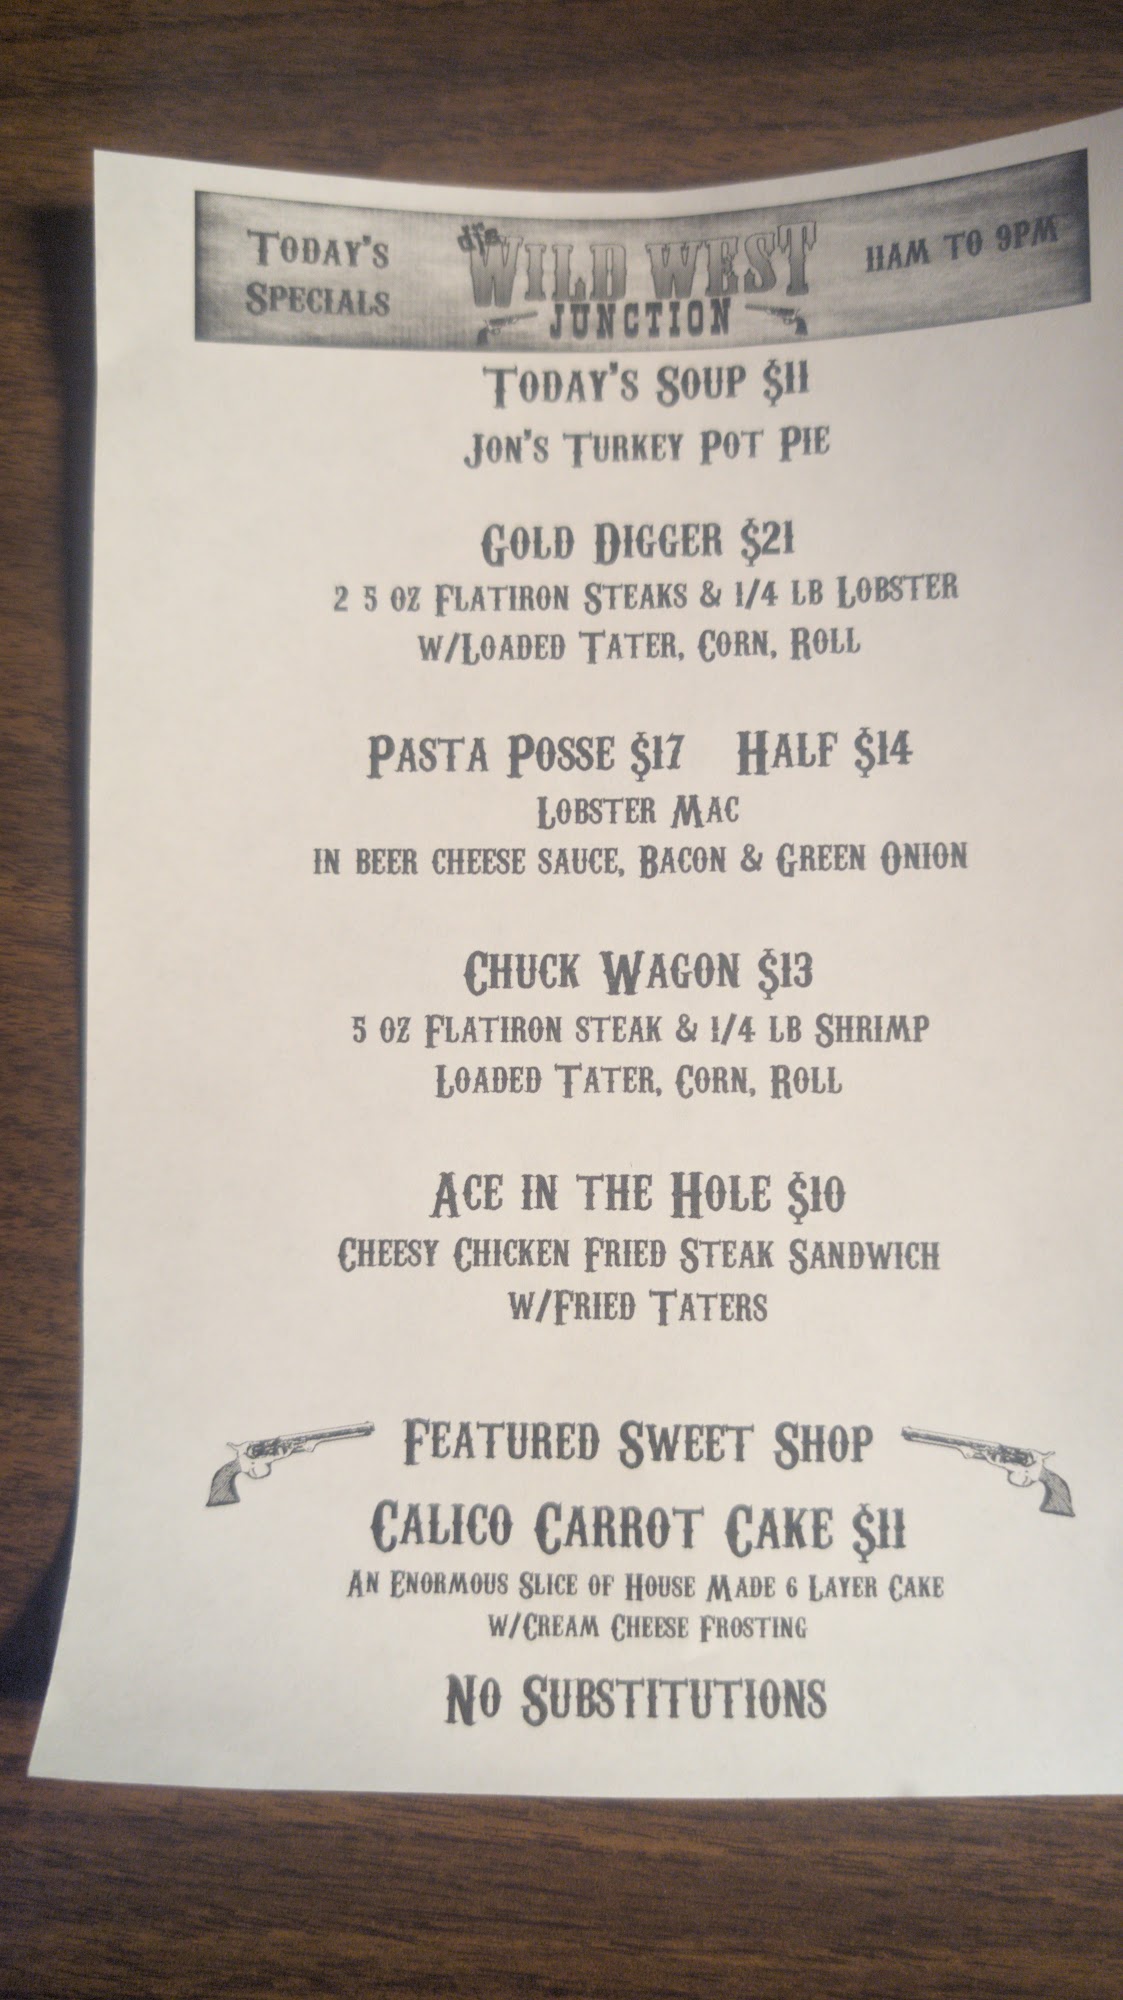 Today's
Specials
dj's
Wild West
Junction
11am to 9pm
Today's Soup $11
Jon's Turkey Pot Pie
Gold Digger $21
2 5 oz Flatiron Steaks & 1/4 lb Lobster
w/Loaded Tater, Corn, Roll
Pasta Posse $17 Half $14
Lobster Mac
in beer cheese sauce, Bacon & Green Onion
Chuck Wagon $13
5 oz Flatiron steak & 1/4 lb Shrimp
Loaded Tater, Corn, Roll
Ace in the Hole $10
Cheesy Chicken Fried Steak Sandwich
w/Fried Taters
Featured Sweet Shop
Calico Carrot Cake $11
An Enormous Slice of House Made 6 Layer Cake
w/Cream Cheese Frosting
No Substitutions